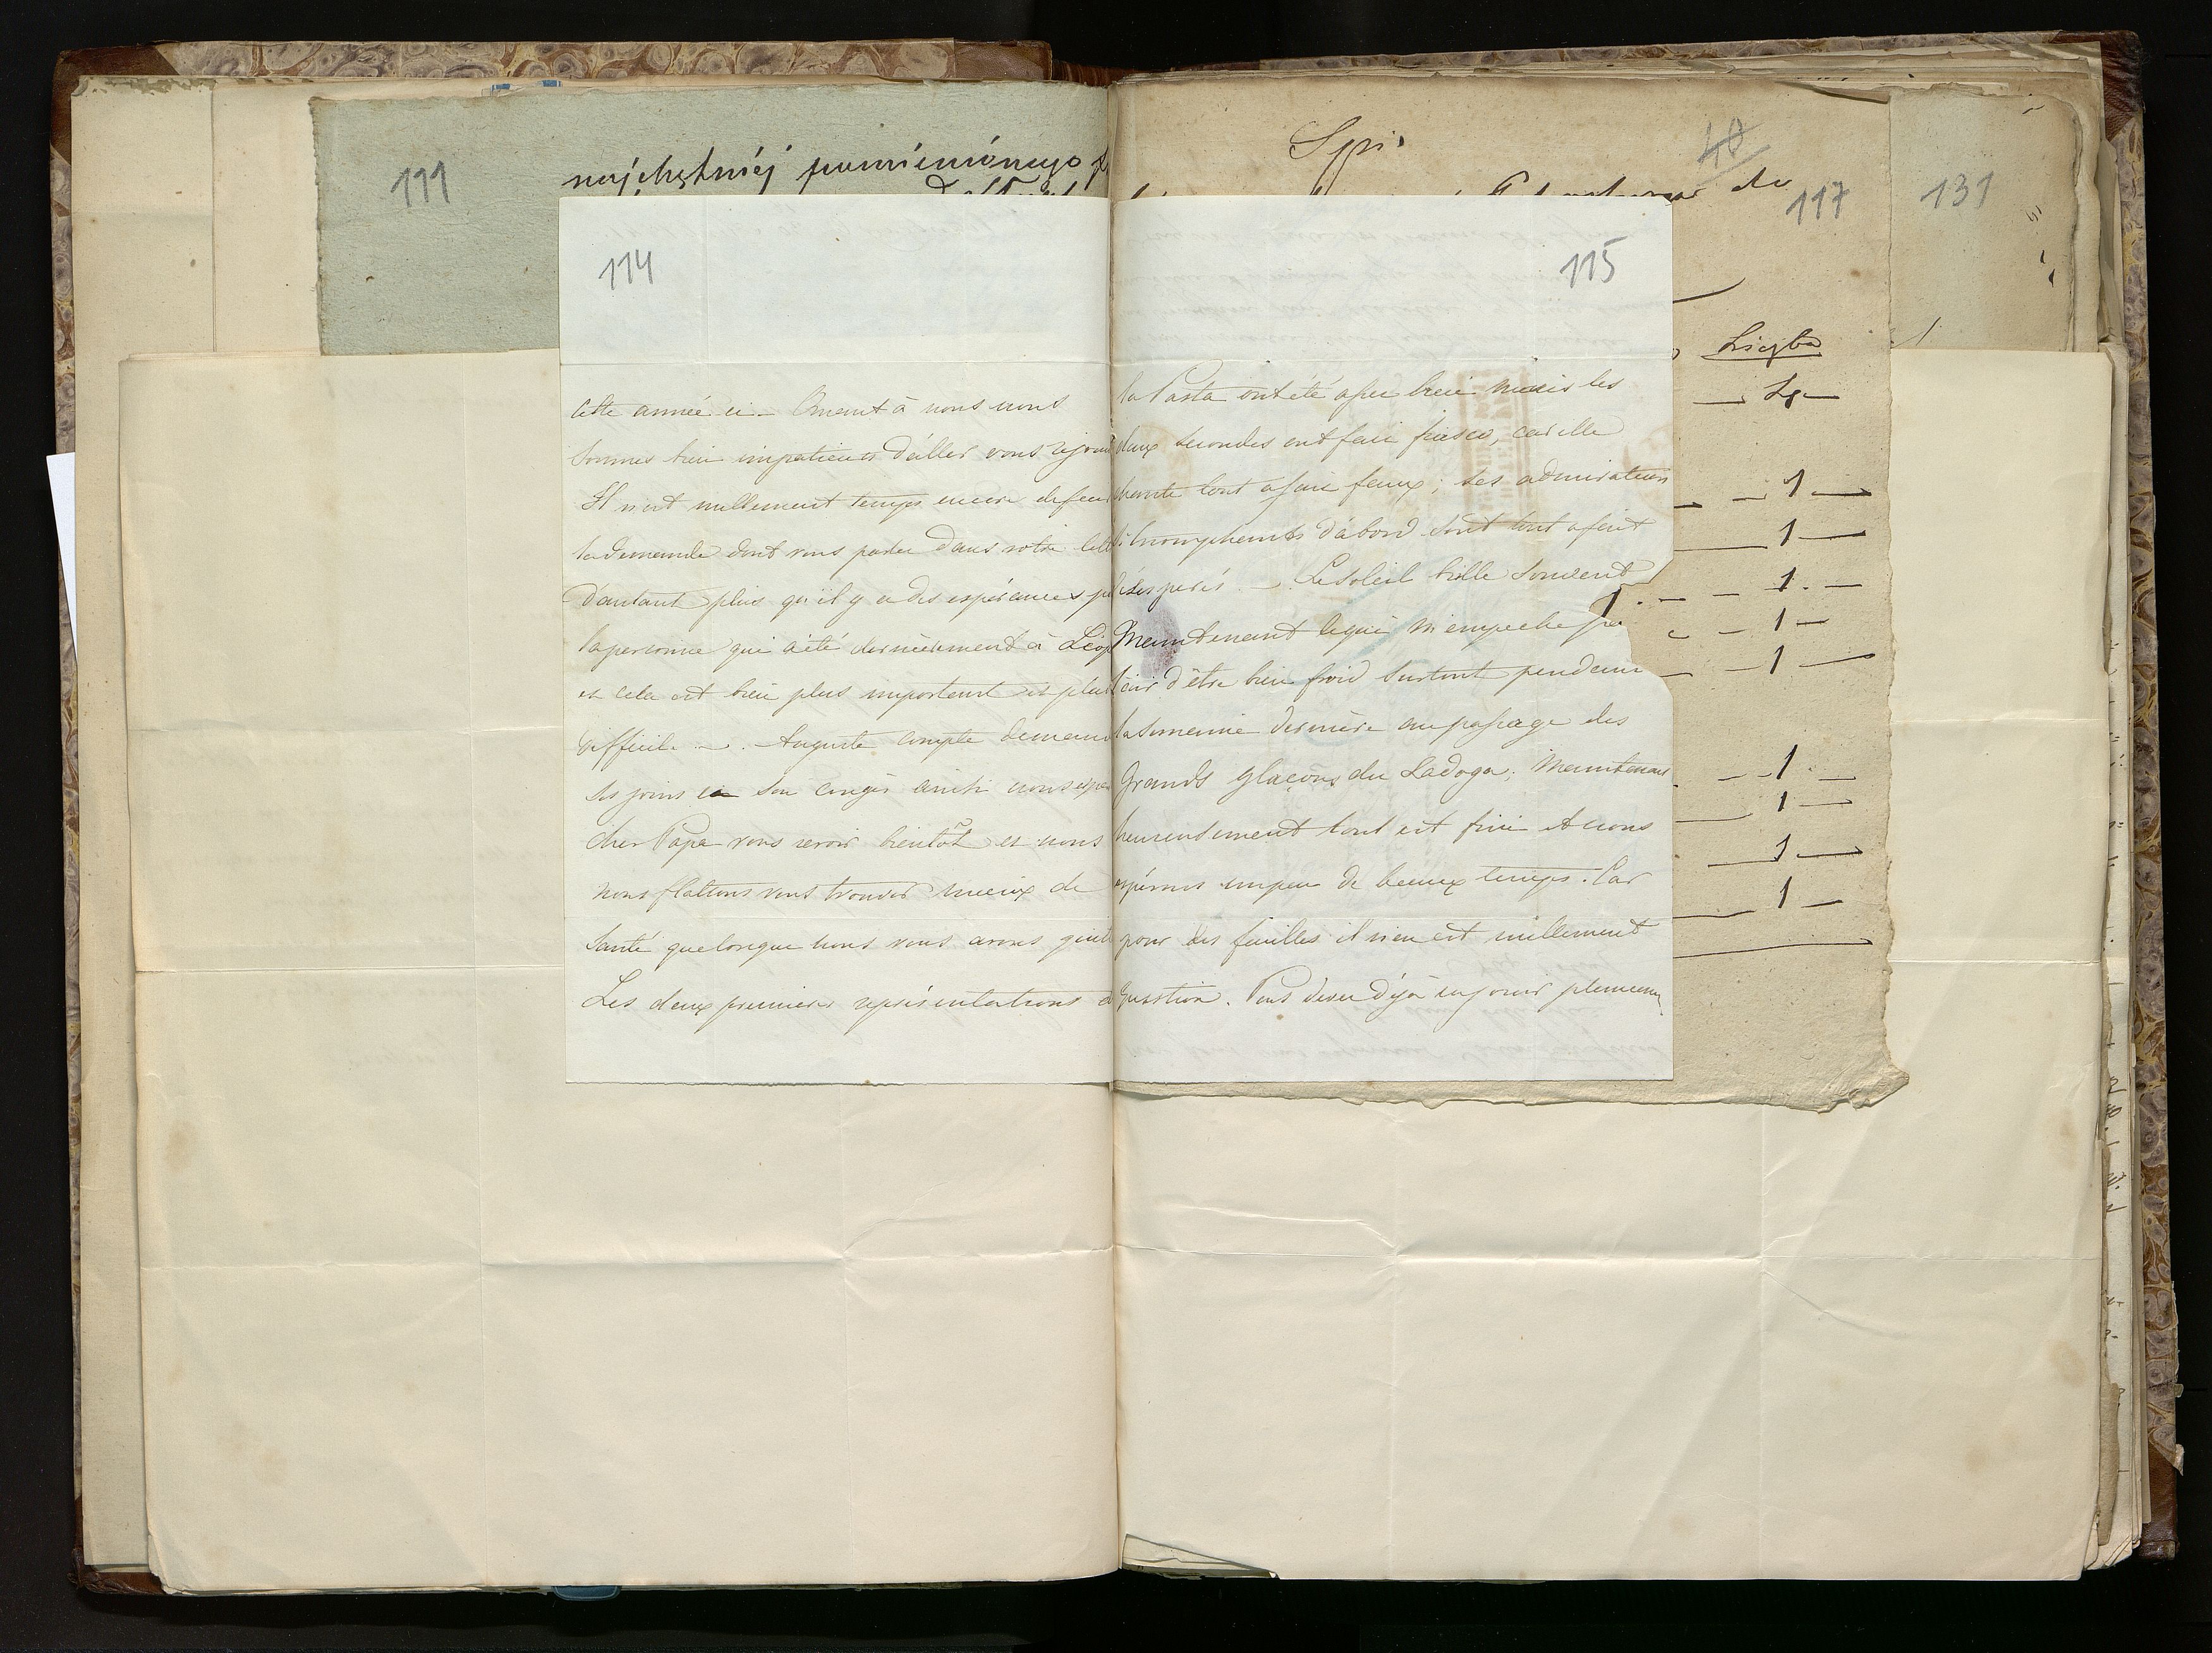 111
najchętniéj
114
cette année ci – Quant à nous nous
sommes bien impatients d'aller vous rejoind
Il n'est nullement temps encore de faire
la demande dont vous parlez dans votre lett
d'autant plus qu'il y a des espérances p
la personne qui a été dernièrement à Léop
et cela est bien plus important et plus
difficile –. Auguste compte demand
ses jours ci son congé ainsi nous espe
cher Papa vous revoir bientôt et nous
nous flattons vous trouver mieux de
Santé que lorsque nous vous avons quitt
Les deux premières représentations d
115
la Pasta ont été assez bien mais les
deux secondes ont fait fiasco, car elle
chante tout a fait faux; ses admirateurs
si triomphants d'abord sont tout a fait
désesperés –. Le soleil brille souvent
Maintenant ce qui n'empeche pas
l'air d'être bien froid surtout pendant
la semaine dernière au passage des
grands glaçons du Ladoga; Maintenant
heureusement tout est fini et nous
espérons un peu de beaux temps. Car
pour des feuilles il n'en est nullement
question. Vous devez déjà en jouir pleinement
Spis
40
do
117
Liczba
1
1
1
1
1
1
1
1
1
131